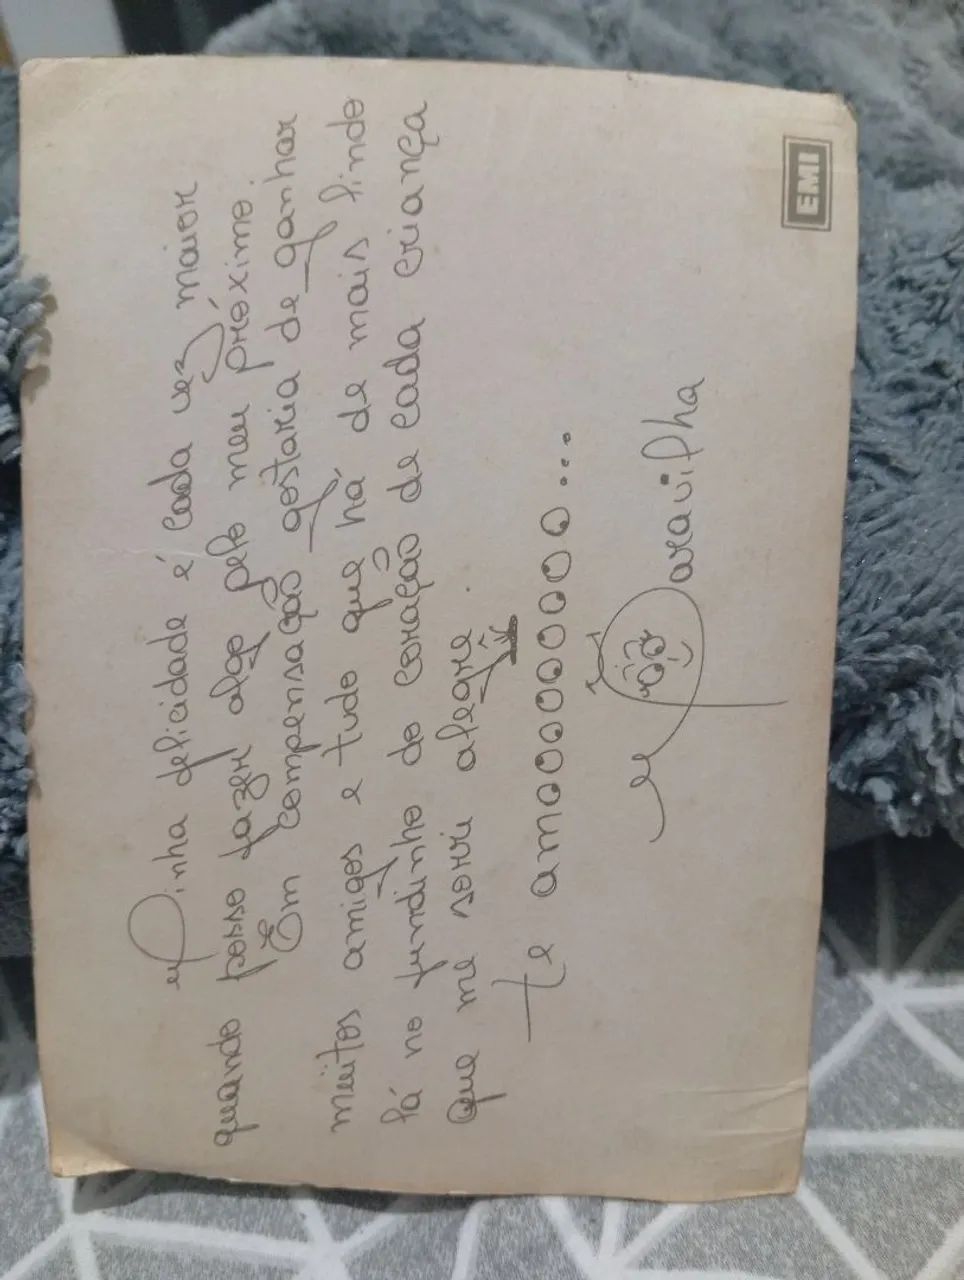 Minha delicidade é cada vez maior
quando posso fazer algo pelo meu próximo.
Em compensação gostaria de ganhar
muitos amigos e tudo que há de mais lindo
lá no fundinho do coração de cada criança
que me sorri alegre.
te amooooooooo...
Maravilha
EMI